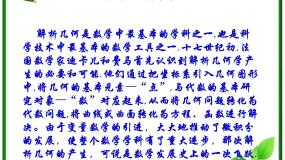 解析几何是数学中最基本的学科之一,也是科
学技术中最基本的数学工具之一.十七世纪初,法
国数学家迪卡儿和费马首先认识到解析几何学产
生的必要和可能.他们通过把坐标系引入几何图形
中,将几何的基本元素—“点”,与代数的基本研
究对象—“数”对应起来,从而将几何问题转化为
代数问题,将曲线或曲面转化为方程、函数进行解
决。由于变量数学的引进,大大地推动了微积分
的发展,使整个数学学科有了重大进步,那次解
析几何的产生,可说是数学发展史上的一次飞跃